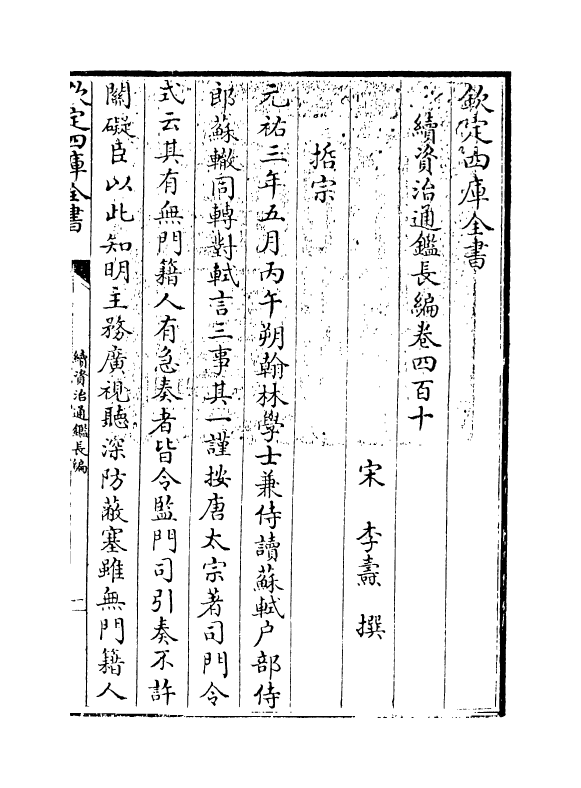 欽定四庫全書
續資治通鑑長編卷四百十
宋 李燾 撰
哲宗
元祐三年五月丙午朔翰林學士兼侍讀蘇軾户部侍
郎蘇轍同轉對軾言三事其一謹按唐太宗著司門令
式云其有無門籍人有急奏者皆令監門司引奏不許
關礙臣以此知明主務廣視聽深防蔽塞雖無門籍人
欽定四庫全書
續資治通鑑長編